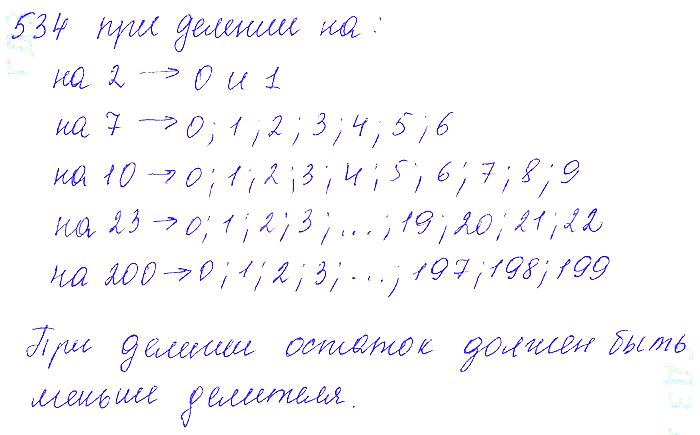 534 при делении на:
на 2 → 0 и 1
на 7 → 0; 1; 2; 3; 4; 5; 6
на 10 → 0; 1; 2; 3; 4; 5; 6; 7; 8; 9
на 23 → 0; 1; 2; 3; ...; 19; 20; 21; 22
на 200 → 0; 1; 2; 3; ...; 197; 198; 199
При делении остаток должен быть
меньше делителя.